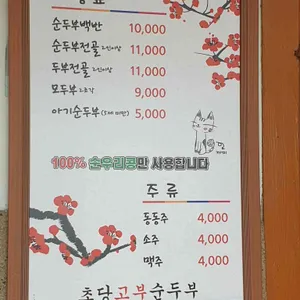 순두부백반 10,000
순두부전골 2인이상 11,000
두부전골 2인이상 11,000
모두부 9,000
아기순두부 (5세 미만) 5,000
100% 순우리콩만 사용합니다
주 류
동동주 4,000
소주 4,000
맥주 4,000
초당고부순두부